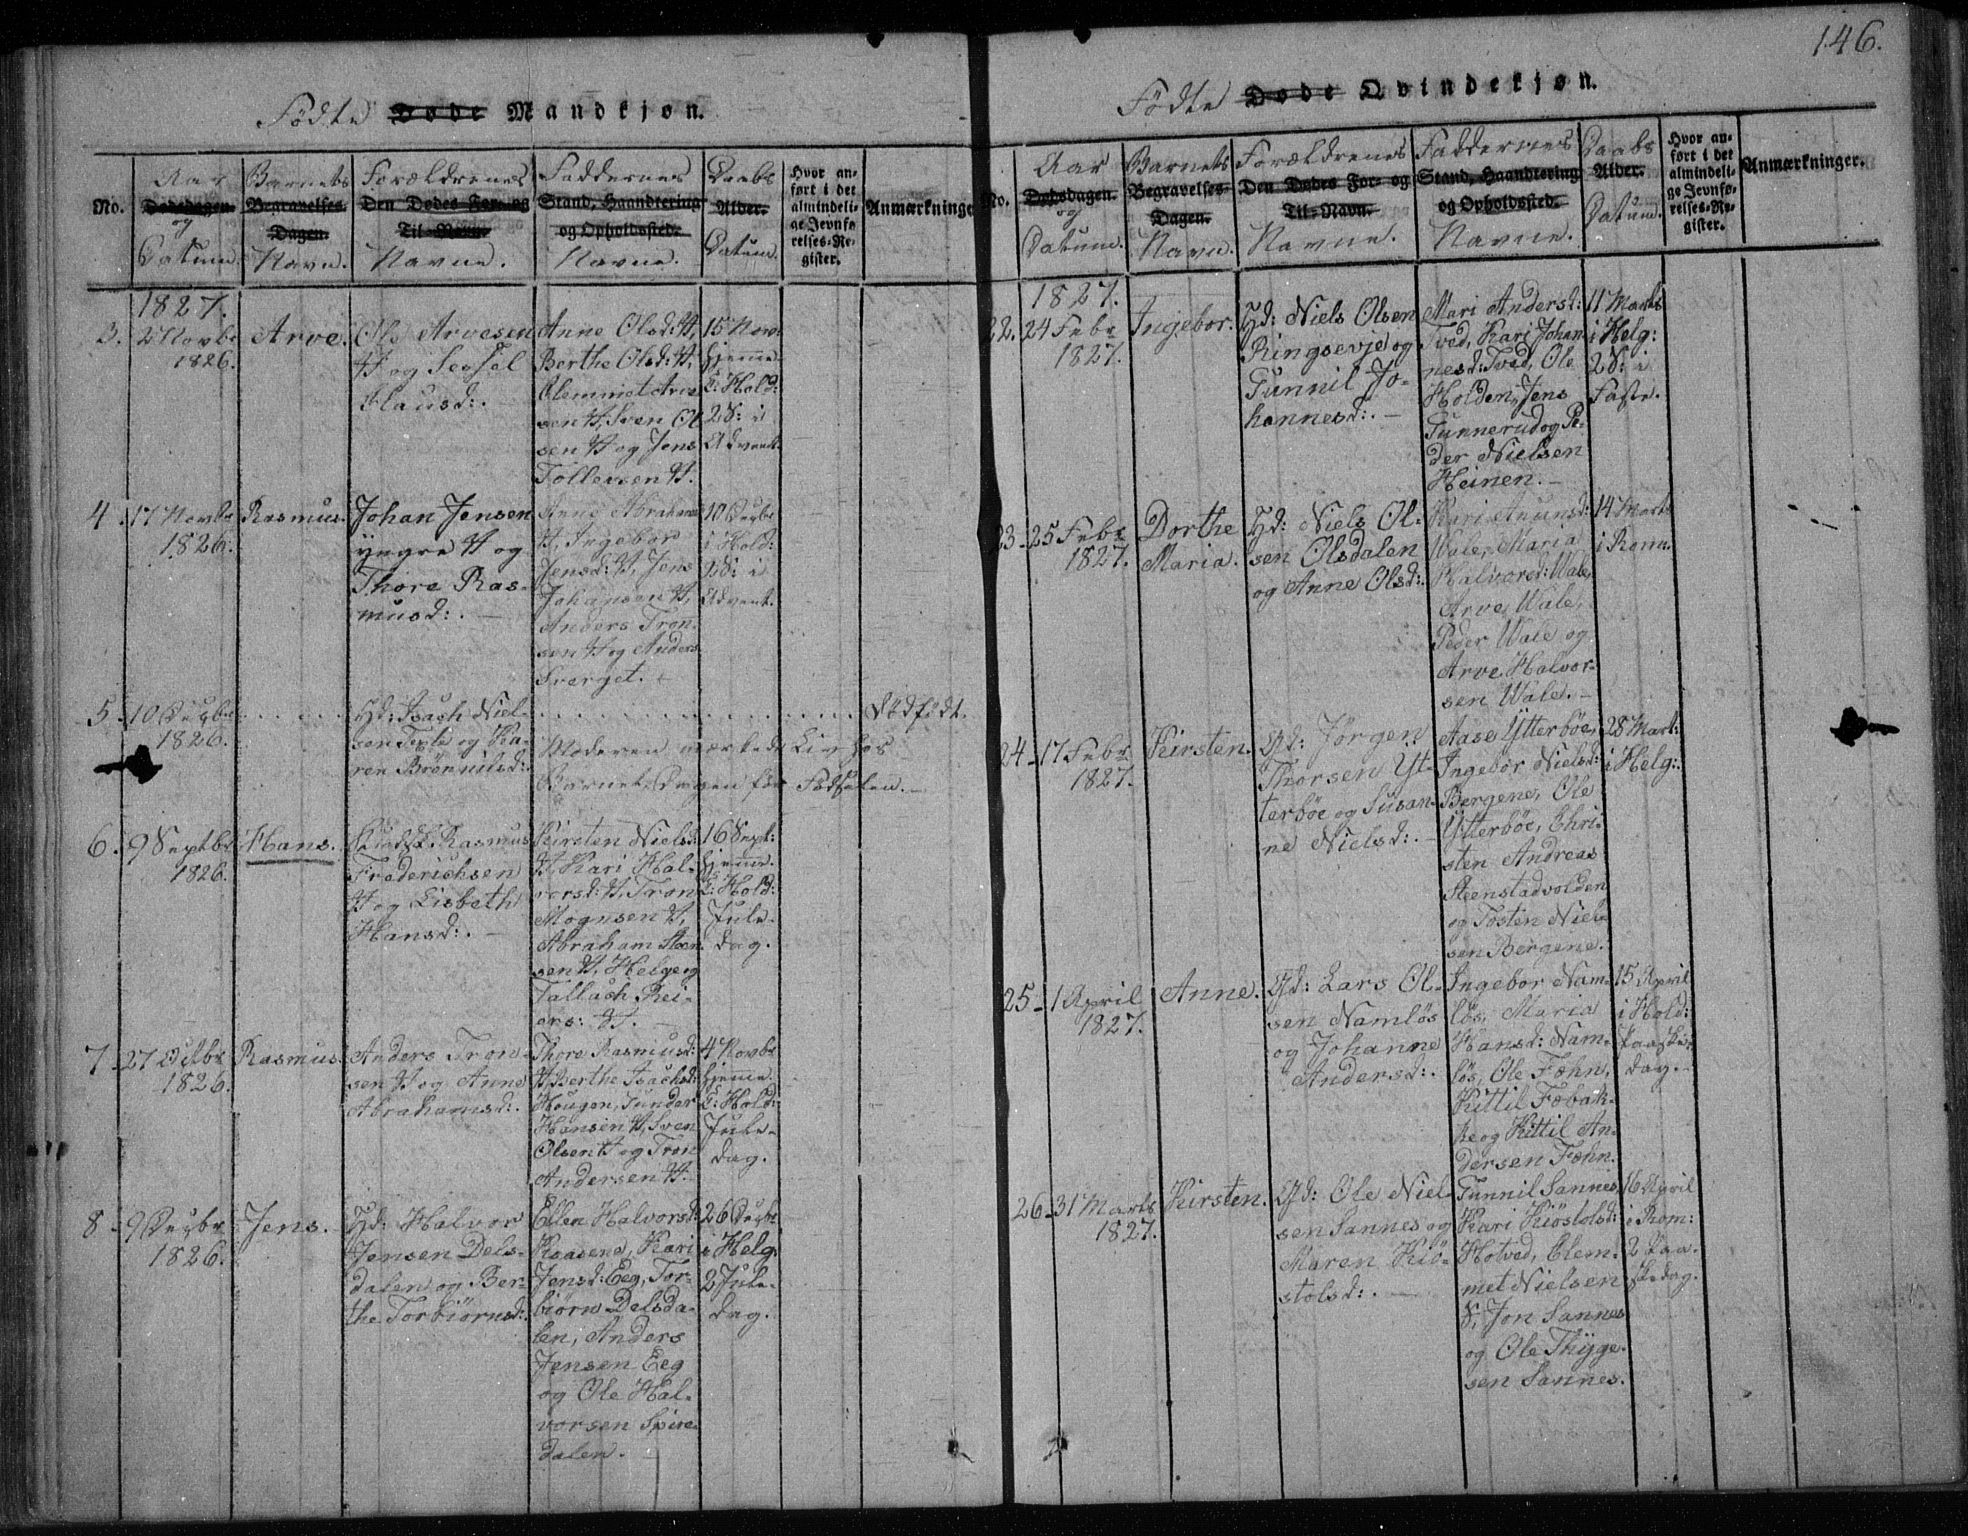 146.
Fødte Døde Mandkjøn.
No.
Aar
Dødsdagen.
og
Datum.
Barnets
Begravelses-
Dagen.
Navn.
Forældrenes
Den Dødes For- og
Til-Navn.
Navne.
Faddernes
Stand, Haandtering
og Opholdssted.
Navne.
Daabs
Alder.
Datum.
Hvor an-
ført i det
almindeli-
ge Jevnfø-
relses-Re-
gister.
Anmærkninge
1827.
3.
2 Novbr
1826.
Arve.
Ols Arvesen
H og Sessel
Clausd:.
Anne Olsd: H,
Berthe Olsd: H,
Clemmet Arve
sen H, Sven Ol
sen H og Jens
Tollevsen H.
15 Novr
hjemme
i Hold:
2 S: i
Advent.
4.
17 Novbr
1826.
Rasmus.
Johan Jensen
yngre H og
Thore Ras-
musd:.
Anne Abrahams
H, Ingebor
Jensd: H, Jens
Johansen H,
Anders Tron
sen H og Anders
Sverget.
10 Decbr
i Hold:
2 S: i
Advent.
5.
10 Decbr
1826.
Gd: Isach Niel-
sen Texle og Ka-
ren Brønnilsd:
Dødfødt.
Moderen mærkede Liv hos
Barnet Dagen før Fødselen.
6.
9 Septbr
1826.
Hans.
Rasmus
Frederichsen
H og Lisbeth
Hansd:.
Kirsten Nielsd:
H, Kari Hal-
vorsd: H, Tron
Mognsen H,
Abraham Steen
sen H, Helge og
Tallach Rei-
ers: H.
16 Sept:
hjemme.
i Hold:
Jule-
dag.
7.
27 Octbr
1826.
Rasmus.
Anders Tron-
sen H og Anne
Abrahamsd:.
Thore Rasmusd:
H, Berthe Isachsd:
Hougen, Gunder
Hansen H, Sven
Olsen H og Tron
Andersen H.
4 Novbr
hjemme.
i Hold:
Jule-
dag.
8.
9 Decbr
1826.
Jens.
Gd: Halvor
Jensen Dels-
dalen og Ber-
the Torbiørnsd:.
Ellen Halvorsd:
Kaasene, Kari
Jensd: Eeg, Tor-
biørn Delsda-
len, Anders
Jensen Eeg
og Ole Hal-
vorsen Spire-
dalen.
26 Decbr
i Helg:
2 Jule-
dag.
Fødte Døde Qvindekjøn.
No.
Aar
Dødsdagen.
og
Datum.
Barnets
Begravelses-
Dagen.
Navn.
Forældrenes
Den Dødes For- og
Til-Navn.
Navne.
Faddernes
Stand, Haandtering
og Opholdssted.
Navne.
Daabs
Alder.
Datum.
Hvor an-
ført i det
almindeli-
ge Jevnfø-
relses-Re-
gister.
Anmærkninger.
1827.
22.
24 Febr
1827.
Ingebor.
Gd: Niels Olsen
Ringsevje og
Gunnil Jo-
hannesd:.
Mari Andersd:
Tved, Kari Johan
nesd: Tved, Ole
Holden, Jens
Gunnerud og Pe-
der Nielsen
Heinen.
11 Marts
i Helg:
2 S: i
Faste.
23.
25 Febr
1827.
Dorthe
Maria.
Gd: Niels Ol-
sen Olsdalen
og Anne Olsd:.
Kari Anunsd:
Wale, Maria
Halvorsd: Wale,
Arve Wale,
Peder Wale og
Arve Halvor-
sen Wale.
14 Marts
i Romn.
24.
17 Febr
1827.
Kirsten.
Gd: Jørgen
Thorsen Yt-
terbøe og Susan-
ne Nielsd:.
Aase Ytterbøe,
Ingebor Nielsd:
Bergene, Ole
Ytterbøe, Chri-
sten Andreas
Steenstadvolden
og Tosten Niel-
sen Bergene.
28 Mart:
i Helg:.
25.
1 April
1827.
Anne.
Gd: Lars Ol-
sen Namløs
og Johanne
Andersd:.
Ingebor Nam-
løs, Maria
Hansd: Nam-
løs, Ole Fæhn,
Kittil Fæbak-
ke og Kittil An-
dersen Fæhn.
15 April
i Hold:
Paaske-
dag.
26.
31 Marts
1827.
Kirsten.
Gd: Ole Niel-
sen Sannes og
Maren Kiø-
stolsd:.
Gunnil Sannes,
Kari Kiøstolsd:
Hotved, Clem-
met Nielsen
S, Jon Sannes
og Ole Thyge-
sen Sannes.
16 April
i Rom:
2 Paa-
skedag.